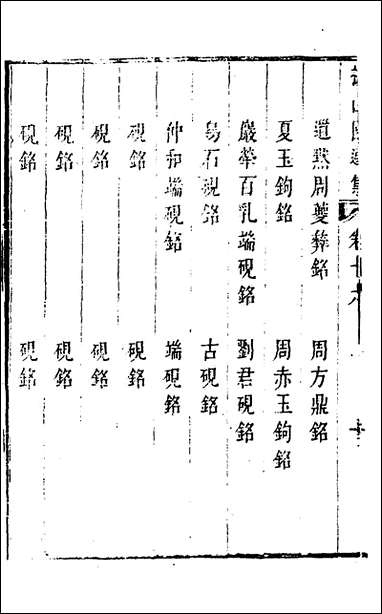 遺集 卷十八
道㸃周夔彝銘 周方鼎銘
夏玉鉤銘 周赤玉鉤銘
嚴華百乳端硯銘 劉君硯銘
易石硯銘 古硯銘
仲和端硯銘 端硯銘
硯銘 硯銘
硯銘 硯銘
硯銘 硯銘
硯銘 硯銘